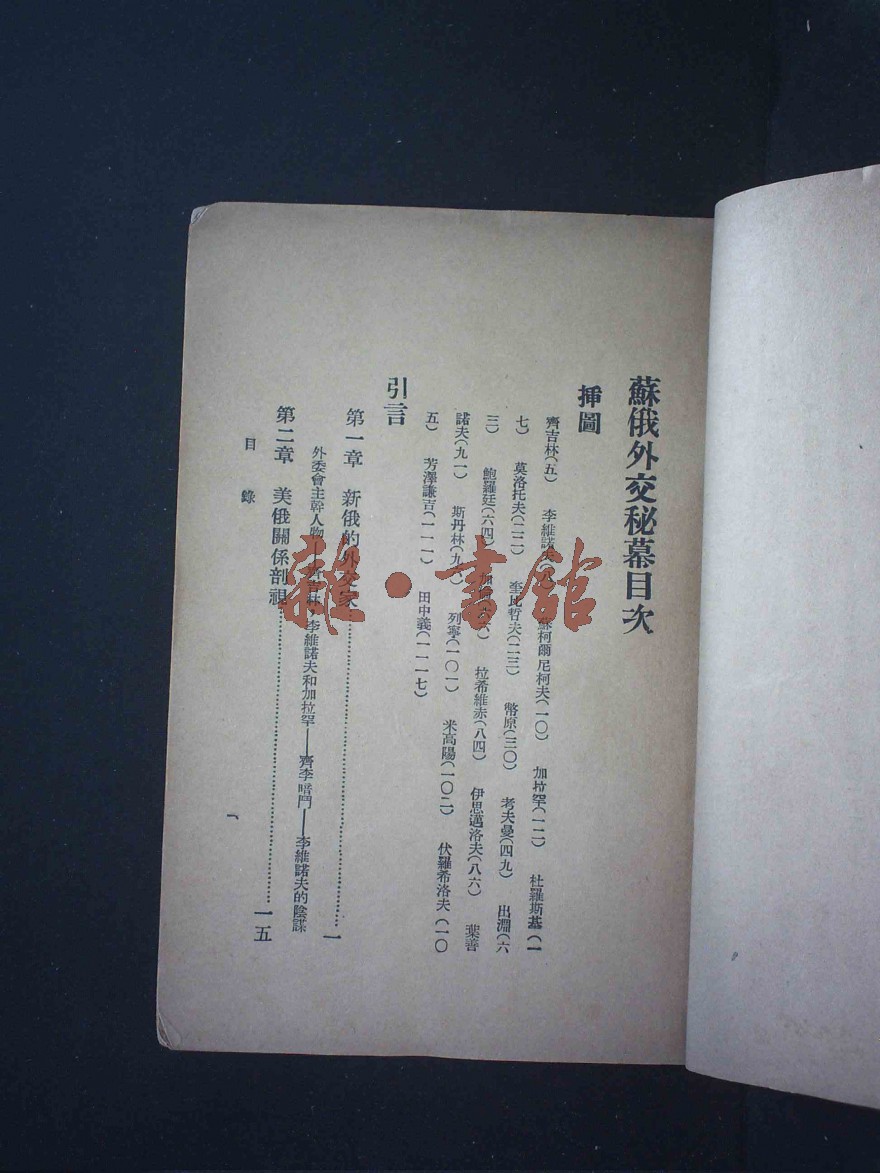 蘇俄外交秘幕目次
揷圖
齊吉林(五) 李維諾夫(八) 蘇柯爾尼柯夫(一〇) 加拉罕(一二) 杜羅斯基(一
七) 莫洛托夫(二二) 奎比哲夫(二三) 幣原(三〇) 考夫曼(四九) 出淵(六
三) 鮑羅廷(六四) 加倫 拉希維赤(八四) 伊思邁洛夫(八六) 葉善
諾夫(九一) 斯丹林(九 列寧(一〇一) 米高陽(一〇二) 伏羅希洛夫(一〇
五) 芳澤謙吉(一一一) 田中義(一一七)
引言
第一章 新俄的外交家……一
外委會主幹人物——齊吉林,李維諾夫和加拉罕——齊李暗鬥——李維諾夫的陰謀
第二章 美俄關係剖視……一五
目錄
一
雜·書館